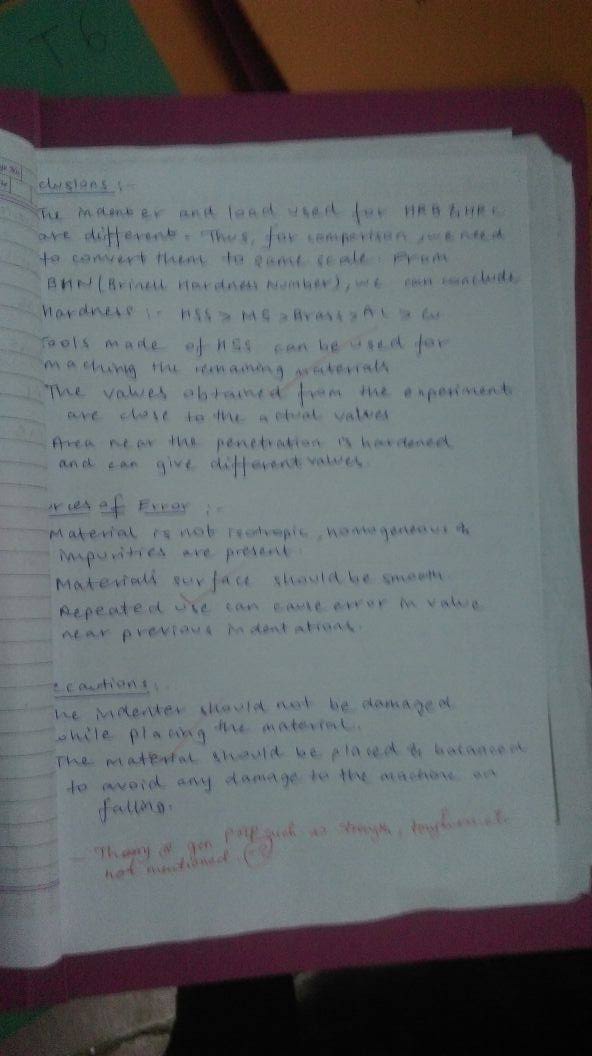 T 6
clusions :-
The indenter and load used for HRB & HRC
are different. Thus, for comparison, we need
to convert them to same scale. From
BHN (Brinell Hardness Number), we can conclude
Hardness :- HSS > MS > Brass > AL > Cu
Tools made of HSS can be used for
maching the remaining materials
The values obtained from the experiment
are close to the actual values
Area near the penetration is hardened
and can give different values.
urces of Error :-
Material is not isotropic, homogeneous &
impurities are present.
Materials surface should be smooth
Repeated use can cause error in value
near previous indentations.
ecautions :-
he indenter should not be damaged
while placing the material.
The material should be placed & balanced
to avoid any damage to the machine on
falling.
- Theory of gen prop such as strength,
not mentioned.